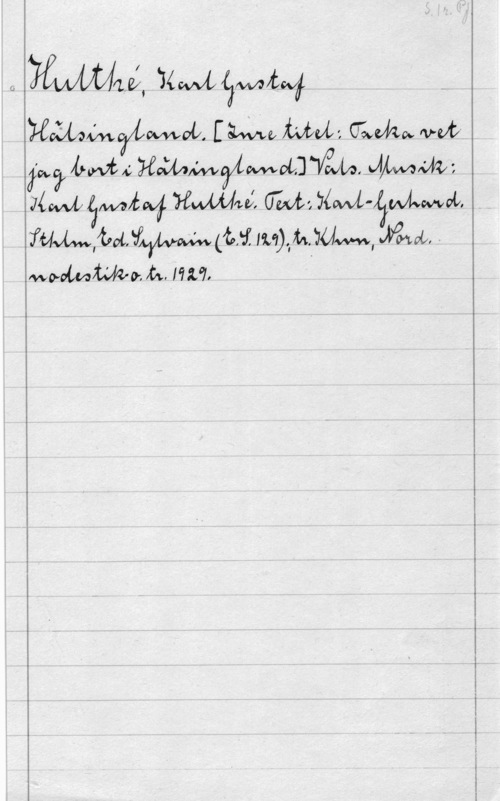 S. tr. Pf.
Hultké, Karl Gustaf
Hälsingland. [Inre titel: Treka vet
jag bort i Hälsingland.] Vals. Musik:
Karl Gustaf Hultké. Text: Karl-Gerhard.
Sthlm, Ed. Sylvain (E.S. 129); tr. Khvn, Nord.
nodestik o. tr. 1929.